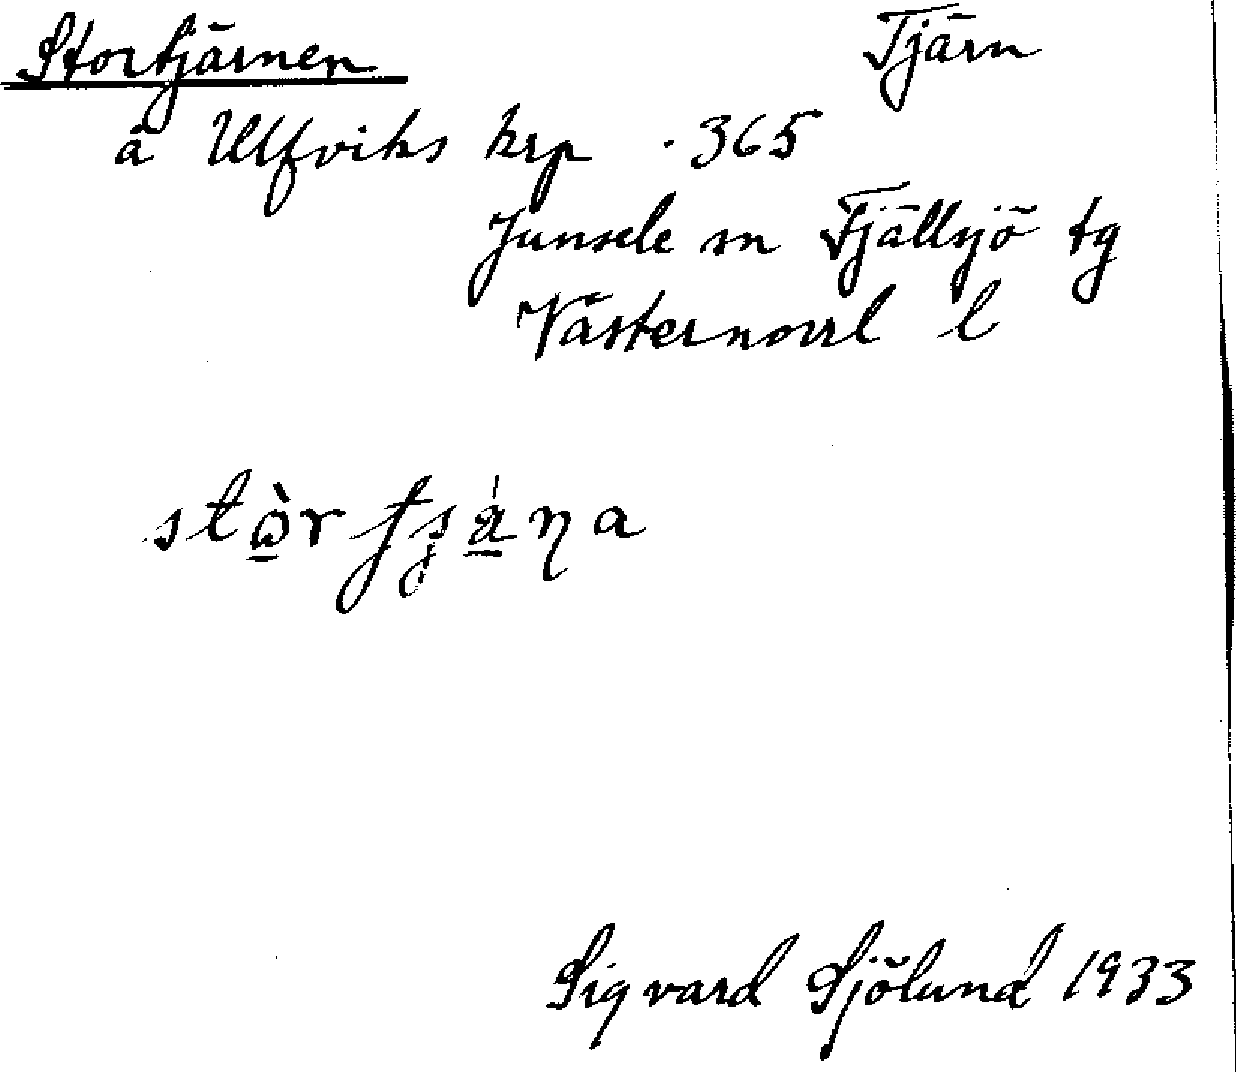 Stortjärnen Tjärn
å Ulfviks krp. 365
Junsele sn Fjällsjö tg
Västernorrl l
Sigvard Sjölund 1933